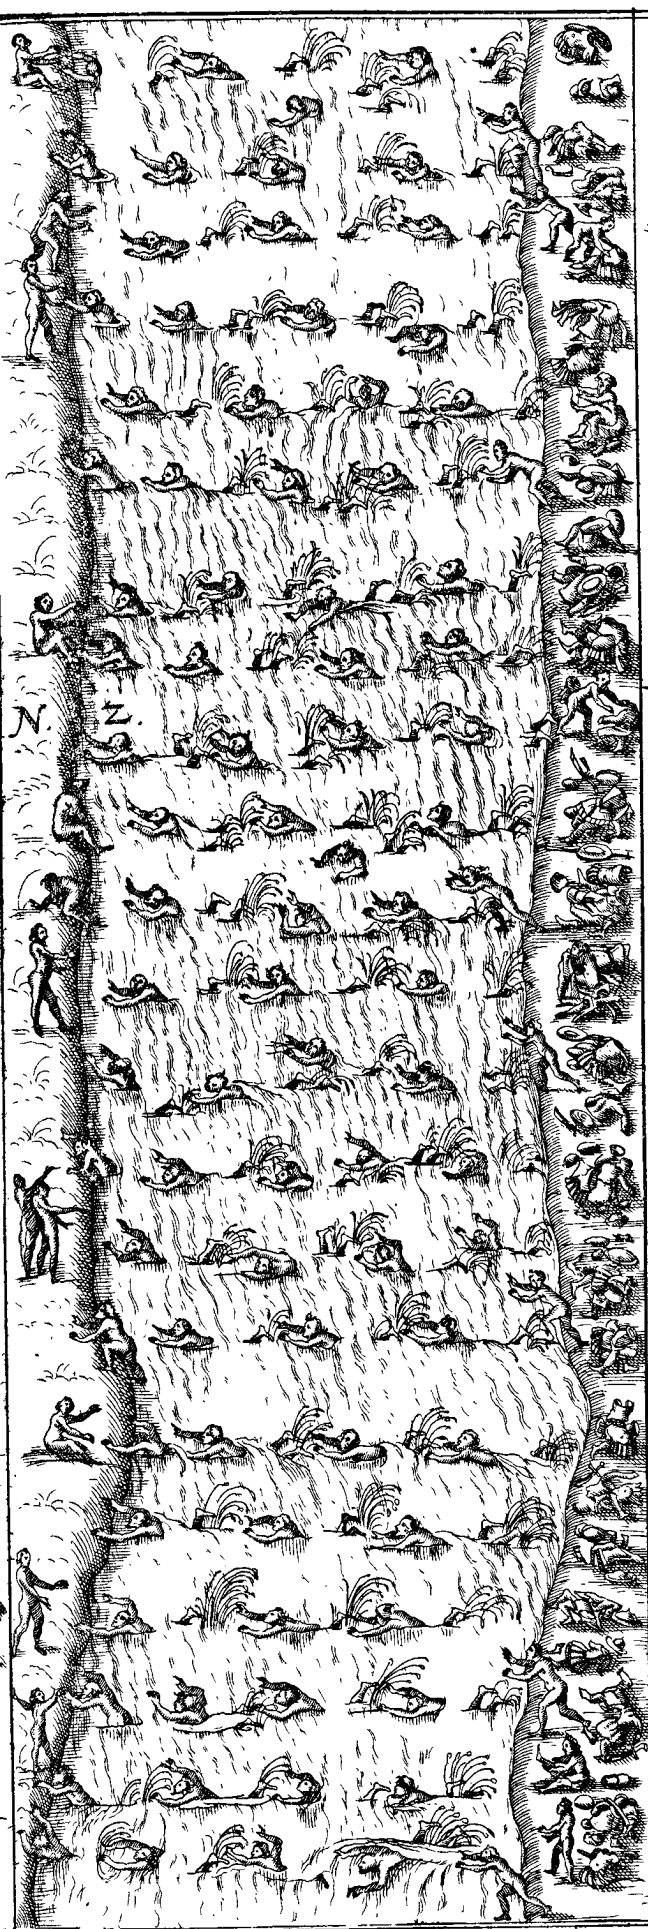 N. Z.